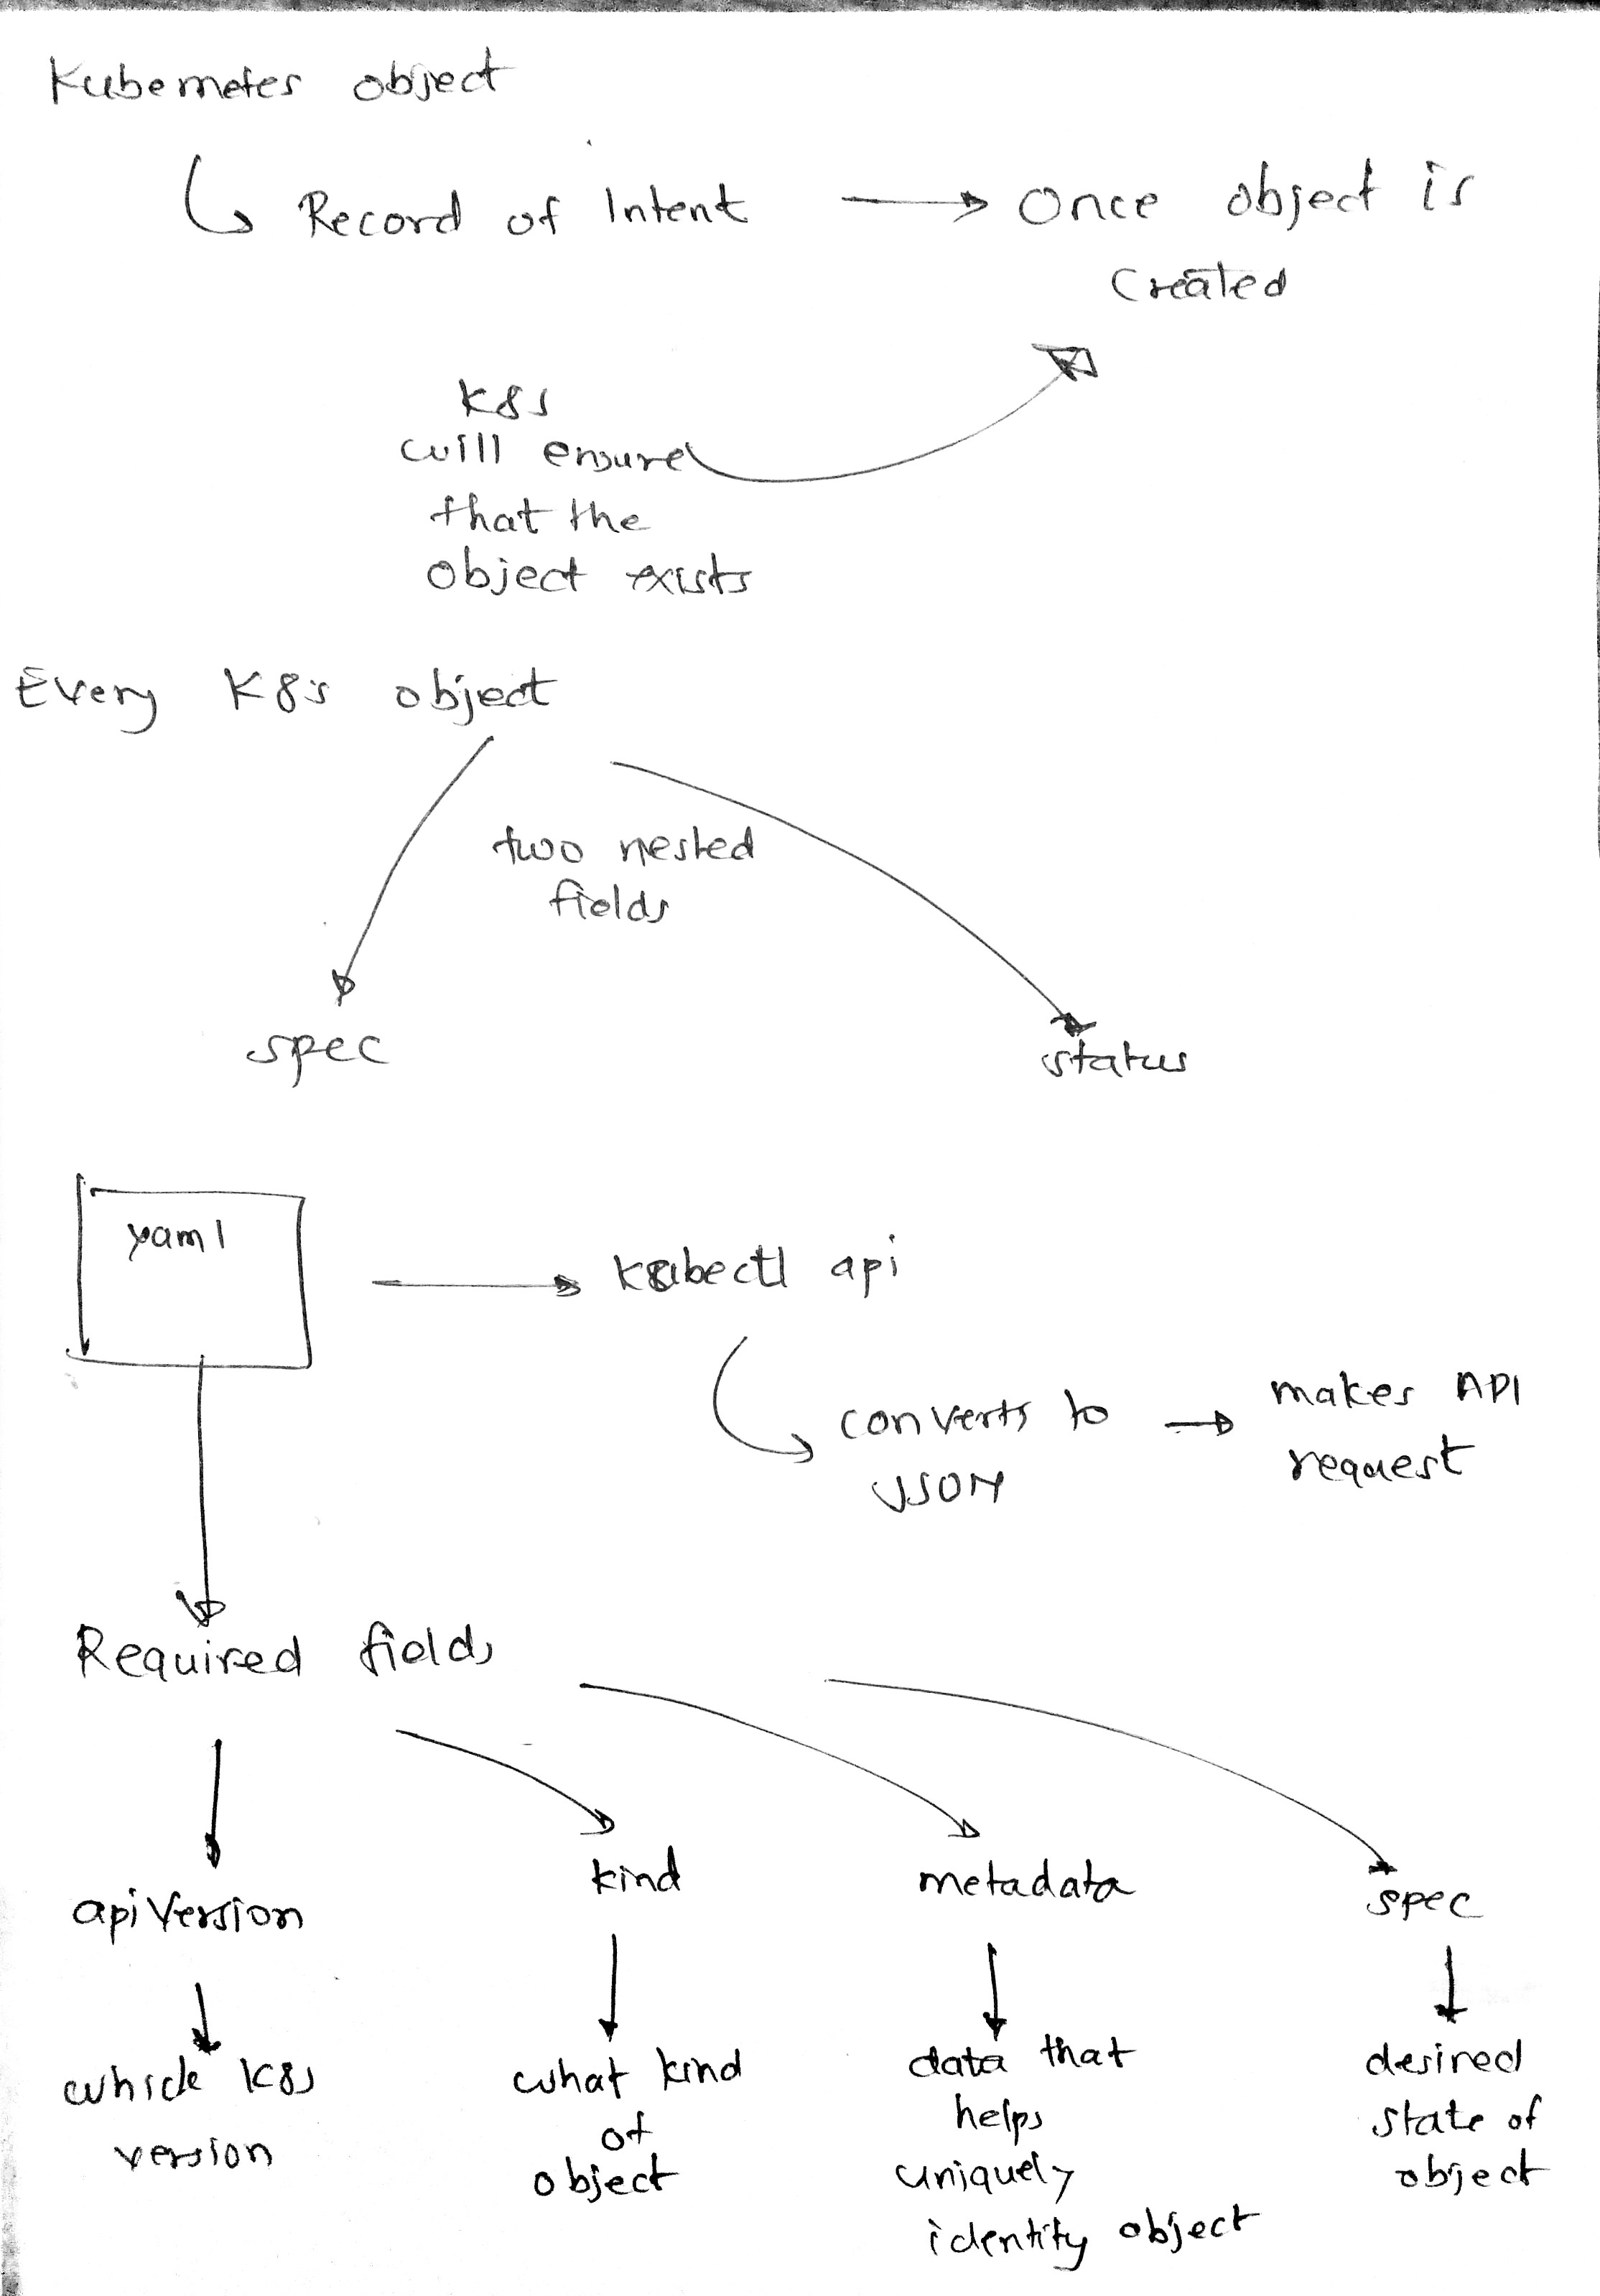 Kubernetes object
Record of Intent → Once object is
Created
K8s
will ensure
that the
object exists
Every K8s object
two nested
fields
spec
status
yaml
kubectl api
converts to
JSON
makes API
request
Required fields
apiVersion
kind
metadata
spec
which K8s
version
what kind
of
object
data that
helps
uniquely
identity object
desired
state of
object